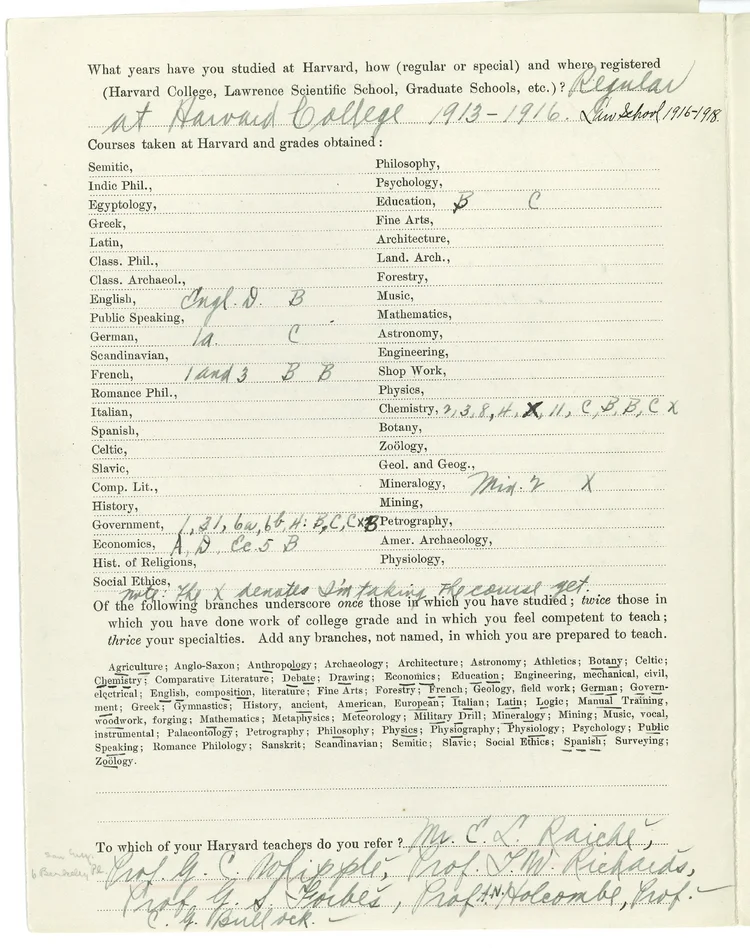 What years have you studied at Harvard, how (regular or special) and where registered
(Harvard College, Lawrence Scientific School, Graduate Schools, etc.)? Regular
at Harvard College 1913-1916. Law School 1916-1918.
Courses taken at Harvard and grades obtained:
Semitic,
Indic Phil.,
Egyptology,
Greek,
Latin,
Class. Phil.,
Class. Archaeol.,
English, Engl. D. B
Public Speaking,
German, 1a. C
Scandinavian,
French, 1 and 3 B B
Romance Phil.,
Italian,
Spanish,
Celtic,
Slavic,
Comp. Lit.,
History,
Government, 1, 31, 6a, 6b, 4: B, C, C x B
Economics, A, D Ec. 5 B
Hist. of Religions,
Social Ethics,
Philosophy,
Psychology,
Education, B C
Fine Arts,
Architecture,
Land. Arch.,
Forestry,
Music,
Mathematics,
Astronomy,
Engineering,
Shop Work,
Physics,
Chemistry, 2, 3, 8, 4, X, 11, C, B, B, C X
Botany,
Zoölogy,
Geol. and Geog.,
Mineralogy, Min. 2 X
Mining,
Petrography,
Amer. Archaeology,
Physiology,
note: The X denotes I'm taking the course yet.
Of the following branches underscore once those in which you have studied; twice those in
which you have done work of college grade and in which you feel competent to teach;
thrice your specialties. Add any branches, not named, in which you are prepared to teach.
Agriculture; Anglo-Saxon; Anthropology; Archaeology; Architecture; Astronomy; Athletics; Botany; Celtic;
Chemistry; Comparative Literature; Debate; Drawing; Economics; Education; Engineering, mechanical, civil,
electrical; English, composition, literature; Fine Arts; Forestry; French; Geology, field work; German; Govern-
ment; Greek; Gymnastics; History, ancient, American, European; Italian; Latin; Logic; Manual Training,
woodwork, forging; Mathematics; Metaphysics; Meteorology; Military Drill; Mineralogy; Mining; Music, vocal,
instrumental; Palaeontology; Petrography; Philosophy; Physics; Physiography; Physiology; Psychology; Public
Speaking; Romance Philology; Sanskrit; Scandinavian; Semitic; Slavic; Social Ethics; Spanish; Surveying;
Zoölogy.
To which of your Harvard teachers do you refer? Mr. E. L. Raiche,
Prof. G. C. Whipple, Prof. T. W. Richards,
Prof. G. S. Forbes, Prof. A.N. Holcombe, Prof.
C. J. Bullock.